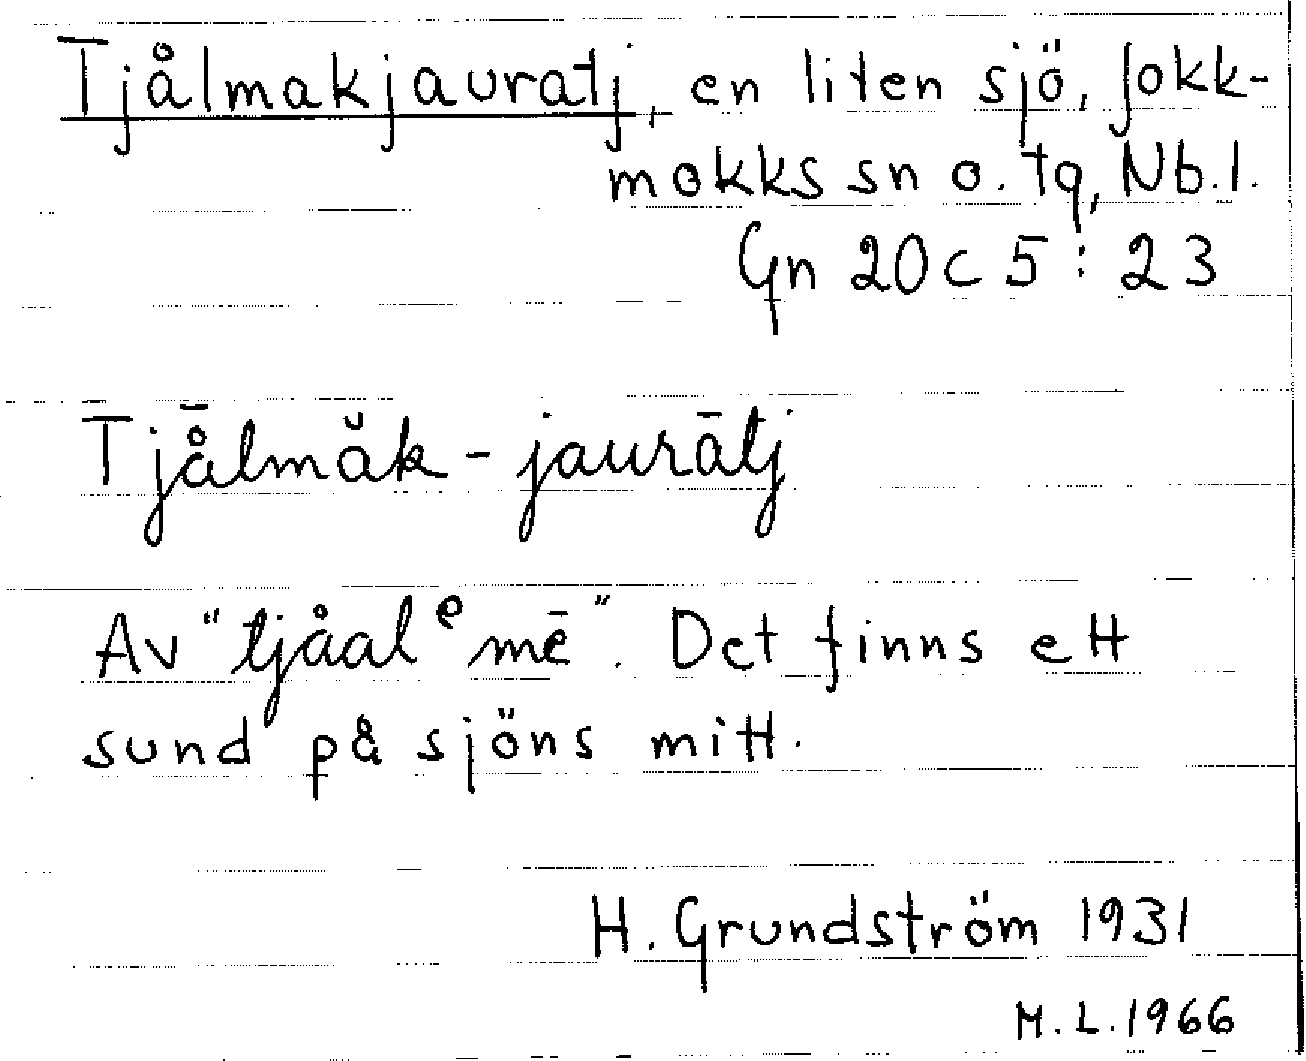 Tjålmakjauratj, en liten sjö, Jokk-
mokks sn o. tg, Nb.l.
Gn 20c 5 : 23
Tjå̄lmăk-jaurātj
Av "tjåalᵉmē". Det finns ett
sund på sjöns mitt.
H. Grundström 1931
M.L.1966